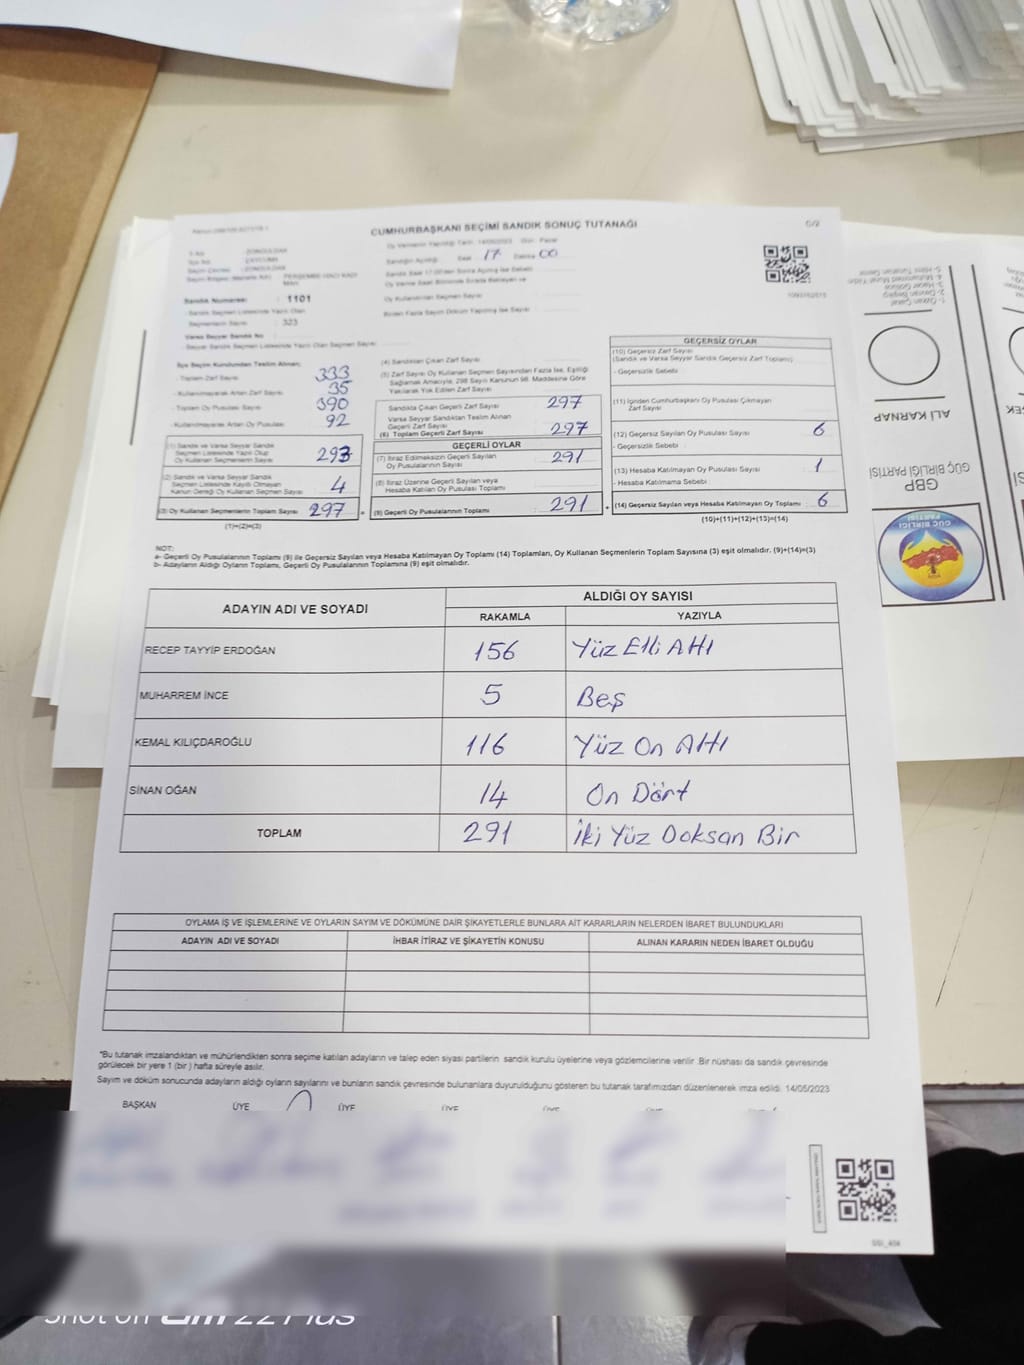 CUMHURBAŞKANI SEÇİMİ SANDIK SONUÇ TUTANAĞI
Oy Vermenin Yapıldığı Tarih: 14/05/2023 Gün: Pazar
Sandığın Açıldığı Saat 17 Dakika 00
Sandık Numarası: 1101
- Sandık Seçmen Listesinde Yazılı Olan
Seçmenlerin Sayısı : 323
Varsa Seyyar Sandık No
- Seyyar Sandık Seçmen Listesinde Yazılı Olan Seçmen Sayısı
İlçe Seçim Kurulundan Teslim Alınan;
- Toplam Zarf Sayısı 333
- Kullanılmayarak Artan Zarf Sayısı 35
- Toplam Oy Pusulası Sayısı 390
- Kullanılmayarak Artan Oy Pusulası 92
(1) Sandık ve Varsa Seyyar Sandık
Seçmen Listesinde Yazılı Olup
Oy Kullanan Seçmenlerin Sayısı 293
(2) Sandık ve Varsa Seyyar Sandık
Seçmen Listesinde Kayıtlı Olmayan
Kanun Gereği Oy Kullanan Seçmen Sayısı 4
(3) Oy Kullanan Seçmenlerin Toplam Sayısı 297
(1)+(2)=(3)
(4) Sandıktan Çıkan Zarf Sayısı
(5) Zarf Sayısı Oy Kullanan Seçmen Sayısından Fazla İse, Eşitliği
Sağlamak Amacıyla, 298 Sayılı Kanunun 98. Maddesine Göre
Yakılarak Yok Edilen Zarf Sayısı
Sandıkta Çıkan Geçerli Zarf Sayısı 297
Varsa Seyyar Sandıktan Teslim Alınan
Geçerli Zarf Sayısı
(6) Toplam Geçerli Zarf Sayısı 297
GEÇERLİ OYLAR
(7) İtiraz Edilmeksizin Geçerli Sayılan
Oy Pusulalarının Sayısı 291
(8) İtiraz Üzerine Geçerli Sayılan veya
Hesaba Katılan Oy Pusulası Toplamı
(9) Geçerli Oy Pusulalarının Toplamı : 291
GEÇERSİZ OYLAR
(10) Geçersiz Zarf Sayısı
(Sandık ve Varsa Seyyar Sandık Geçersiz Zarf Toplamı)
- Geçersizlik Sebebi
(11) İçinden Cumhurbaşkanı Oy Pusulası Çıkmayan
Zarf Sayısı
(12) Geçersiz Sayılan Oy Pusulası Sayısı 6
- Geçersizlik Sebebi
(13) Hesaba Katılmayan Oy Pusulası Sayısı 1
- Hesaba Katılmama Sebebi :
(14) Geçersiz Sayılan veya Hesaba Katılmayan Oy Toplamı : 6
(10)+(11)+(12)+(13)=(14)
NOT:
a- Geçerli Oy Pusulalarının Toplamı (9) ile Geçersiz Sayılan veya Hesaba Katılmayan Oy Toplamı (14) Toplamları, Oy Kullanan Seçmenlerin Toplam Sayısına (3) eşit olmalıdır. (9)+(14)=(3)
b- Adayların Aldığı Oyların Toplamı, Geçerli Oy Pusulalarının Toplamına (9) eşit olmalıdır.
ADAYIN ADI VE SOYADI ALDIĞI OY SAYISI
RAKAMLA YAZIYLA
RECEP TAYYİP ERDOĞAN 156 Yüz Elli Altı
MUHARREM İNCE 5 Beş
KEMAL KILIÇDAROĞLU 116 Yüz On Altı
SİNAN OĞAN 14 On Dört
TOPLAM 291 İki Yüz Doksan Bir
OYLAMA İŞ VE İŞLEMLERİNE VE OYLARIN SAYIM VE DÖKÜMÜNE DAİR ŞİKAYETLERLE BUNLARA AİT KARARLARIN NELERDEN İBARET BULUNDUKLARI
ADAYIN ADI VE SOYADI İHBAR İTİRAZ VE ŞİKAYETİN KONUSU ALINAN KARARIN NEDEN İBARET OLDUĞU
*Bu tutanak imzalandıktan ve mühürlendikten sonra seçime katılan adayların ve talep eden siyasi partilerin sandık kurulu üyelerine veya gözlemcilerine verilir. Bir nüshası da sandık çevresinde
görülecek bir yere 1 (bir) hafta süreyle asılır.
Sayım ve döküm sonucunda adayların aldığı oyların sayılarını ve bunların sandık çevresinde bulunanlara duyurulduğunu gösteren bu tutanak tarafımızdan düzenlenerek imza edildi. 14/05/2023
BAŞKAN ÜYE ÜYE ÜYE ÜYE
ALİ KARNAP
GÜÇ BİRLİĞİ PARTİSİ
GBP
GÜÇ BİRLİĞİ
PARTİSİ
Shot on 22 Plus